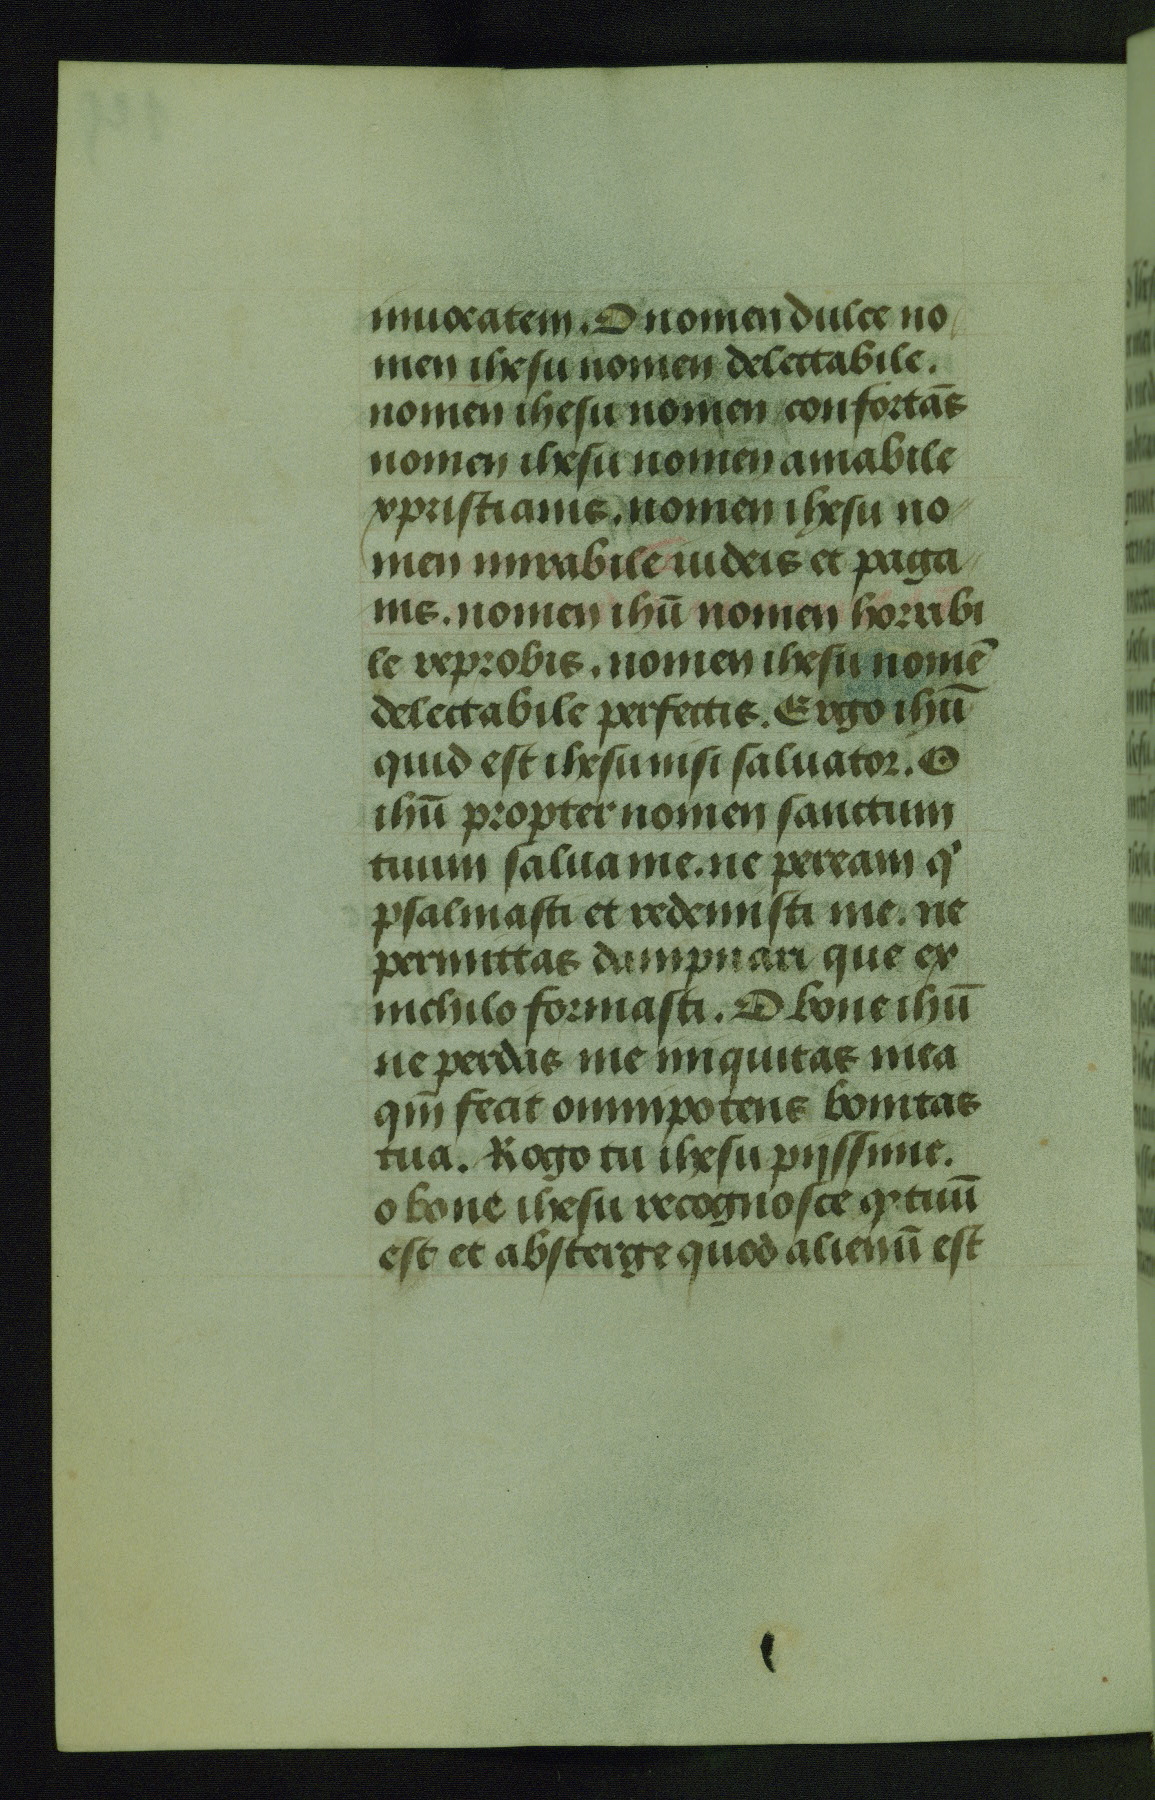 inuocatem. O nomen dulce no
men ihesu nomen delectabile.
nomen ihesu nomen confortās
nomen ihesu nomen amabile
xpristianis. nomen ihesu no
men mirabile iudeis et paga
nis. nomen ihū nomen horribi
le reprobis. nomen ihesu nomē
delectabile perfectis. Ergo ihū
quid est ihesu nisi saluator. O
ihū propter nomen sanctum
tuum salua me. ne peream q
psalmasti et redemisti me. ne
permittas dampnari que ex
nichilo formasti. O bone ihū
ne perdas me iniquitas mea
qm̄ fecit omnipotens bonitas
tua. Rogo tu ihesu pijssime.
o bone ihesu recognosce q tuū
est et absterge quod alienū est